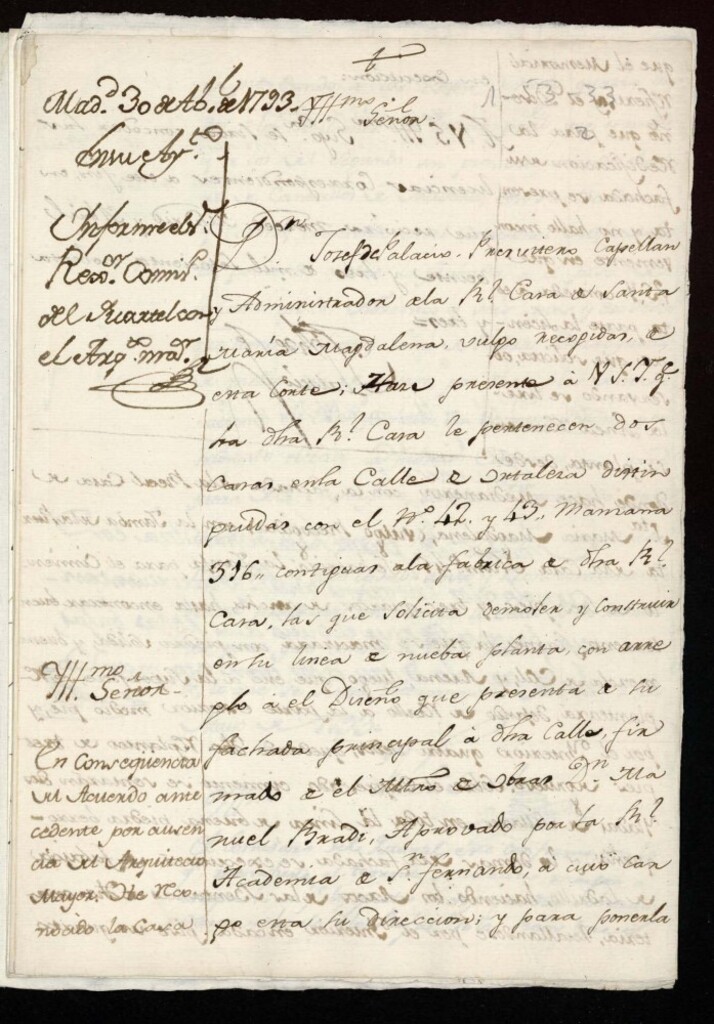 Mad.d 30 de Ab.l de 1793.
En su Ay.to
Informe el S.r
Rex.or Comis.o
del Quartel con
el Arq.to ma.or
Yll.mo Señor
D.n Josef de Palacio, Presvitero Capellan
y Administrador de la R.l Casa de Santa
María Magdalena, vulgo recogidas, de
esta Corte; Haze presente à V.S.I. q.e
à dha R.l Casa le pertenecen dos
Casas en la Calle de Ortaleza distin
guidas con el N.o 42. y 43,, Manzana
316,, contiguas a la fabrica de dha R.l
Casa, las que solicita demoler y Construir
en su linea de nueba planta, con arre
glo à el Diseño que presenta de su
fachada principal à dha Calle, fir
mado de el Mtro de Obras D.n Ma
nuel Bradi, Aprovado por la R.l
Academia de S.n Fernando, a cuio car
go esta su direccion; y para ponerla
Yll.mo Señor
En Consequencia
del Acuerdo ante
cedente por ausen
cia del Arquitecto
Mayor, He reco
nocido la Casa